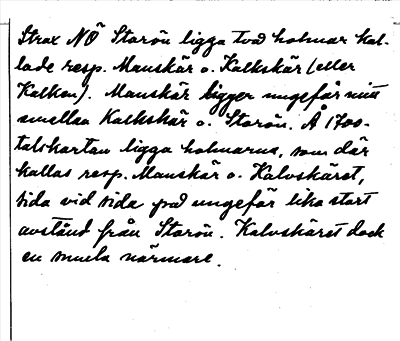 Strax NÖ Storön ligga två holmar kal-
lade resp. Manskär o. Kalkskär (eller
Kalkon). Manskär ligger ungefär mitt
emellan Kalkskär o. Storön. Å 1700-
talskartan ligga holmarna, som där
kallas resp. Manskär o. Kalvskäret,
sida vid sida på ungefär lika stort
avstånd från Storön. Kalvskäret dock
en smula närmare.